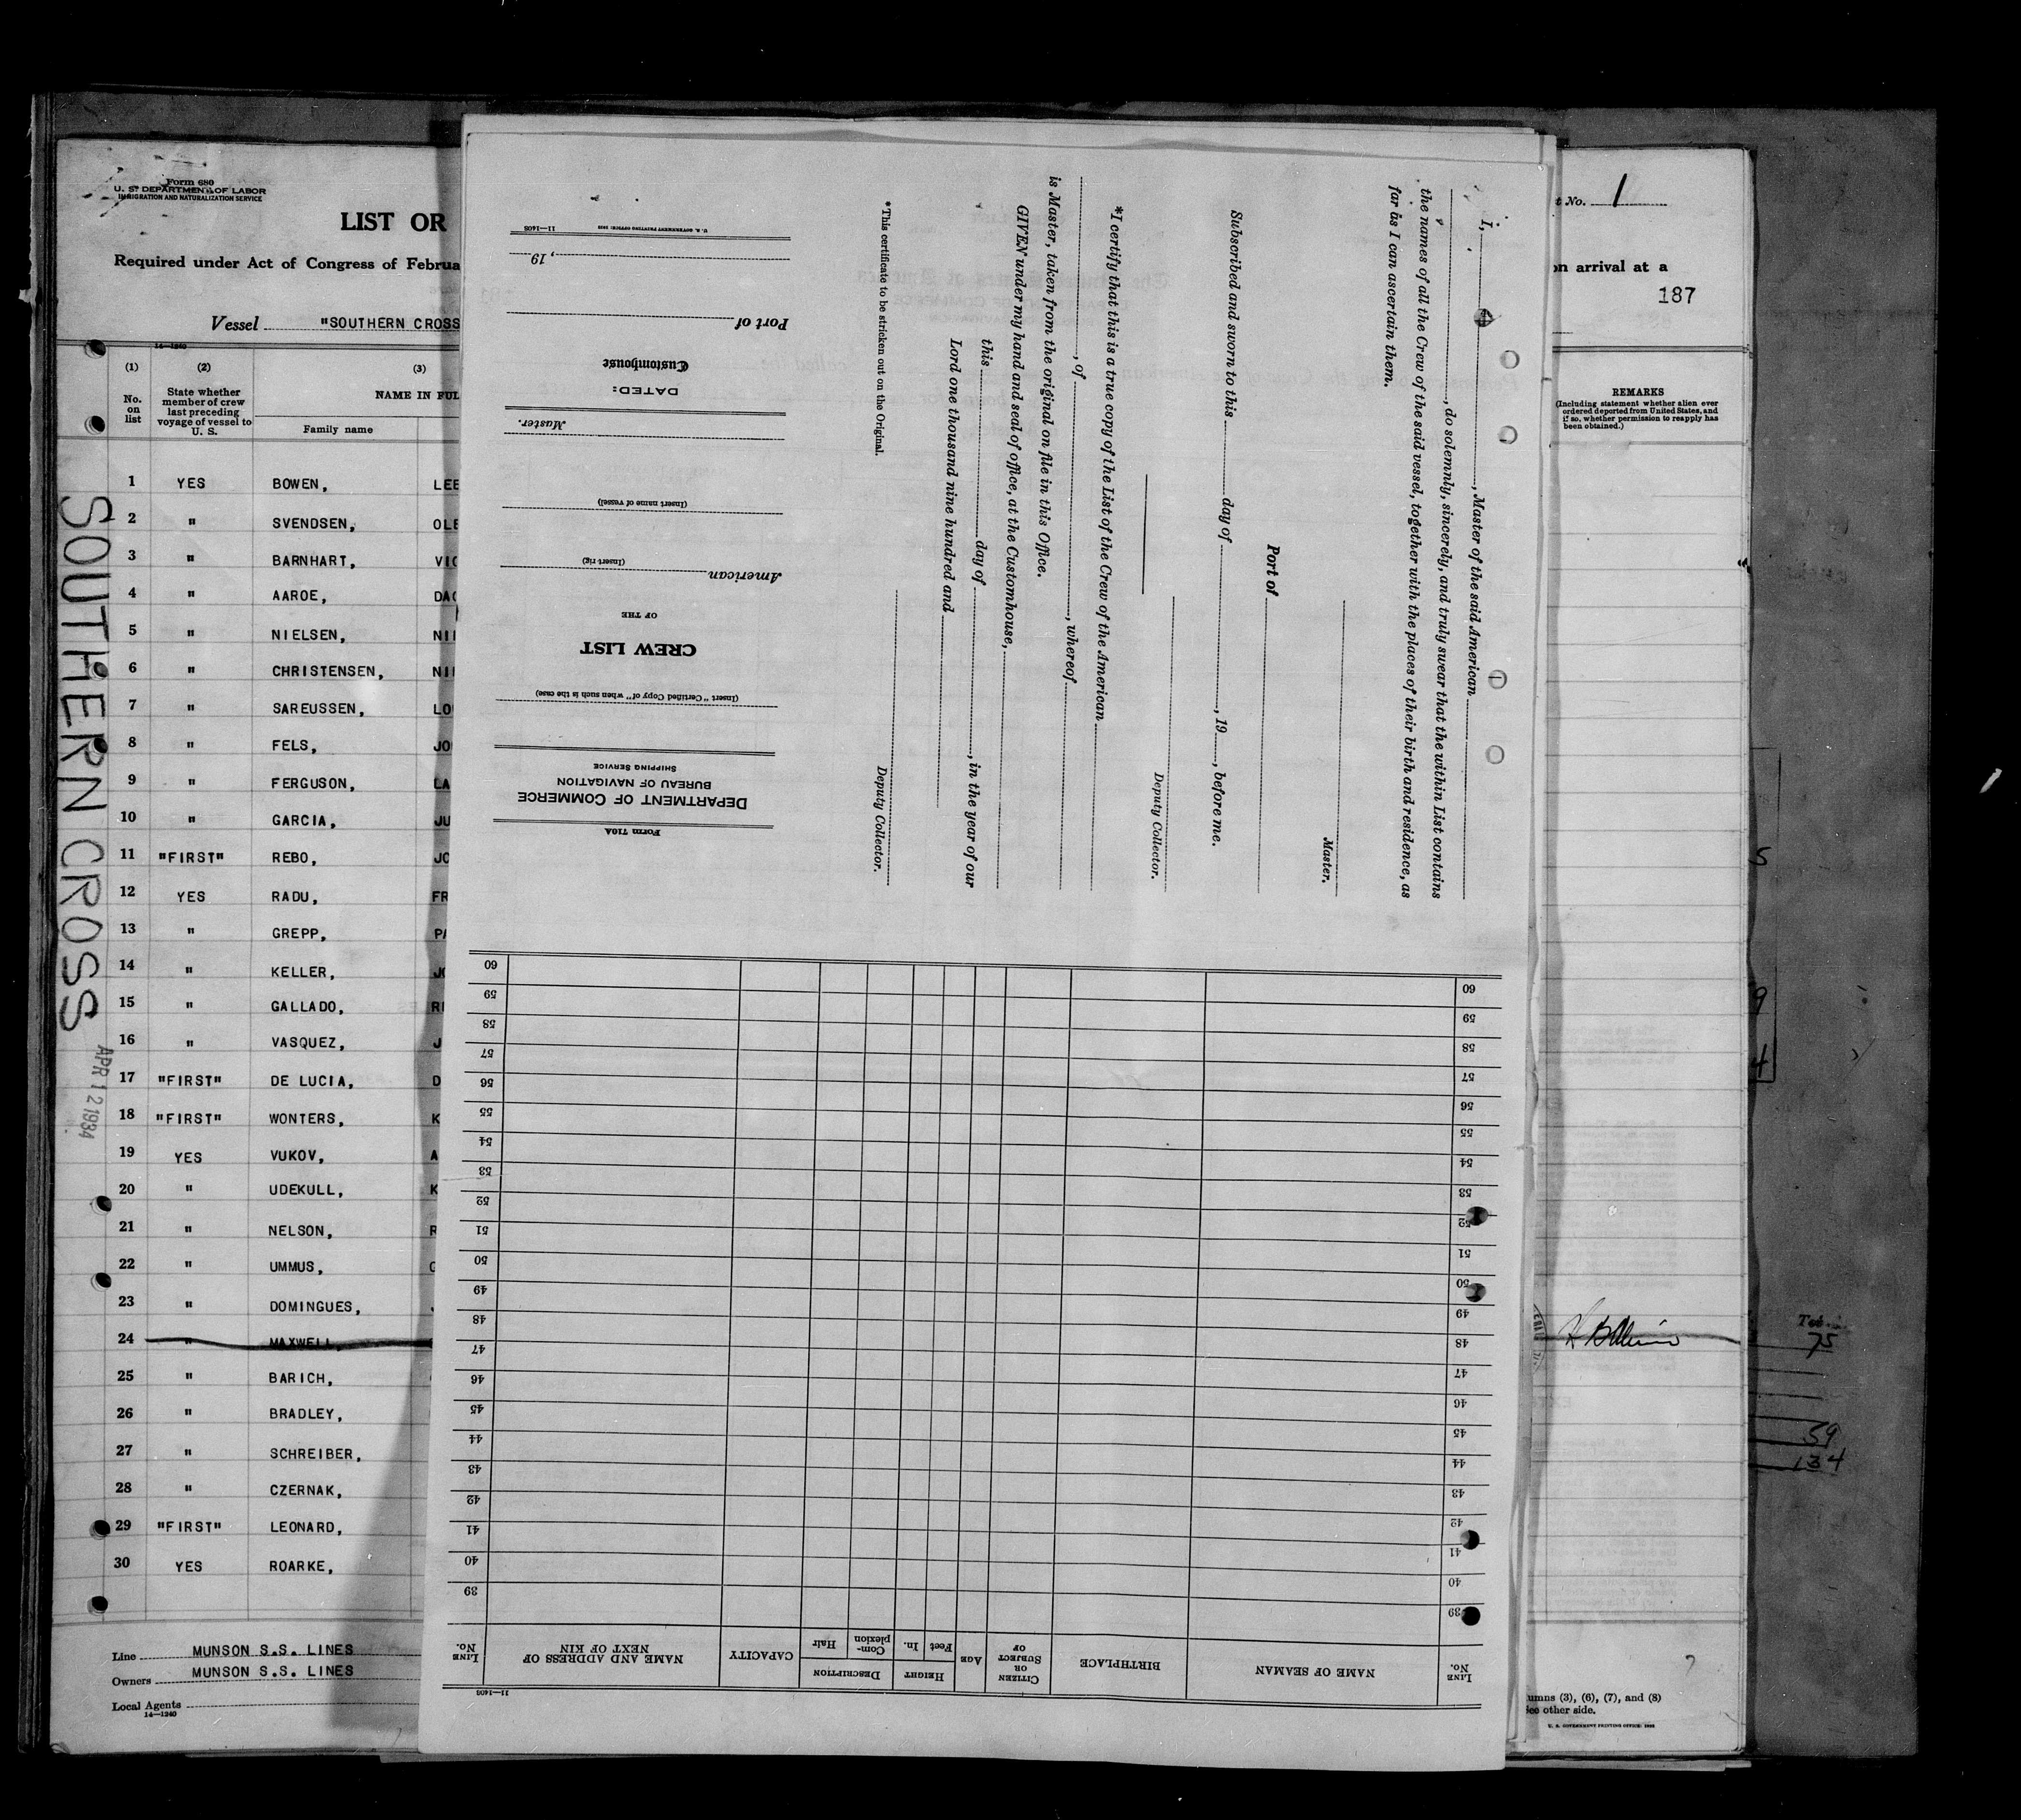 Form 680
U. S. DEPARTMENT OF LABOR
IMMIGRATION AND NATURALIZATION SERVICE
LIST OR
Required under Act of Congress of Februa
Vessel "SOUTHERN CROSS
14—1240
(1) (2) (3)
No. on list
State whether member of crew last preceding voyage of vessel to U. S.
NAME IN FUL
Family name
1 YES BOWEN, LEE
2 " SVENDSEN, OLE
3 " BARNHART, VIC
4 " AAROE, DAG
5 " NIELSEN, NII
6 " CHRISTENSEN, NII
7 " SAREUSSEN, LO
8 " FELS, JO
9 " FERGUSON, LA
10 " GARCIA, JU
11 "FIRST" REBO, JO
12 YES RADU, FR
13 " GREPP, PA
14 " KELLER, JO
15 " GALLADO, RI
16 " VASQUEZ, J
17 "FIRST" DE LUCIA, D
18 "FIRST" WONTERS, K
19 YES VUKOV, A
20 " UDEKULL, K
21 " NELSON, R
22 " UMMUS,
23 " DOMINGUES,
24 " MAXWELL,
25 " BARICH,
26 " BRADLEY,
27 " SCHREIBER,
28 " CZERNAK,
29 "FIRST" LEONARD,
30 YES ROARKE,
Line MUNSON S.S. LINES
Owners MUNSON S.S. LINES
Local Agents
14—1240
SOUTHERN CROSS
APR 12 1934
I, , Master of the said American
, do solemnly, sincerely, and truly swear that the within List contains
the names of all the Crew of the said vessel, together with the places of their birth and residence, as
far as I can ascertain them.
Master.
Port of
Subscribed and sworn to this day of , 19 , before me.
Deputy Collector.
*I certify that this is a true copy of the List of the Crew of the American
, of , whereof
is Master, taken from the original on file in this Office.
GIVEN under my hand and seal of office, at the Customhouse,
this day of , in the year of our
Lord one thousand nine hundred and
Deputy Collector.
*This certificate to be stricken out on the Original.
Form 710A
DEPARTMENT OF COMMERCE
BUREAU OF NAVIGATION
SHIPPING SERVICE
(Insert "Certified Copy of" when such is the case)
CREW LIST
OF THE
American
(Insert rig)
(Insert name of vessel)
Master.
DATED:
Customhouse
Port of
, 19
U. S. GOVERNMENT PRINTING OFFICE: 1933
11—1403
11—1403
LINE No.
NAME OF SEAMAN
BIRTHPLACE
CITIZEN OR SUBJECT OF
AGE
HEIGHT
Feet
In.
DESCRIPTION
Complexion
Hair
CAPACITY
NAME AND ADDRESS OF NEXT OF KIN
LINE No.
39 39
40 40
41 41
42 42
43 43
44 44
45 45
46 46
47 47
48 48
49 49
50 50
51 51
52 52
53 53
54 54
55 55
56 56
57 57
58 58
59 59
60 60
t No. 1
on arrival at a
187
REMARKS
(Including statement whether alien ever ordered deported from United States, and if so, whether permission to reapply has been obtained.)
5
9
4
75
59
134
umns (3), (6), (7), and (8)
See other side.
U. S. GOVERNMENT PRINTING OFFICE: 1933